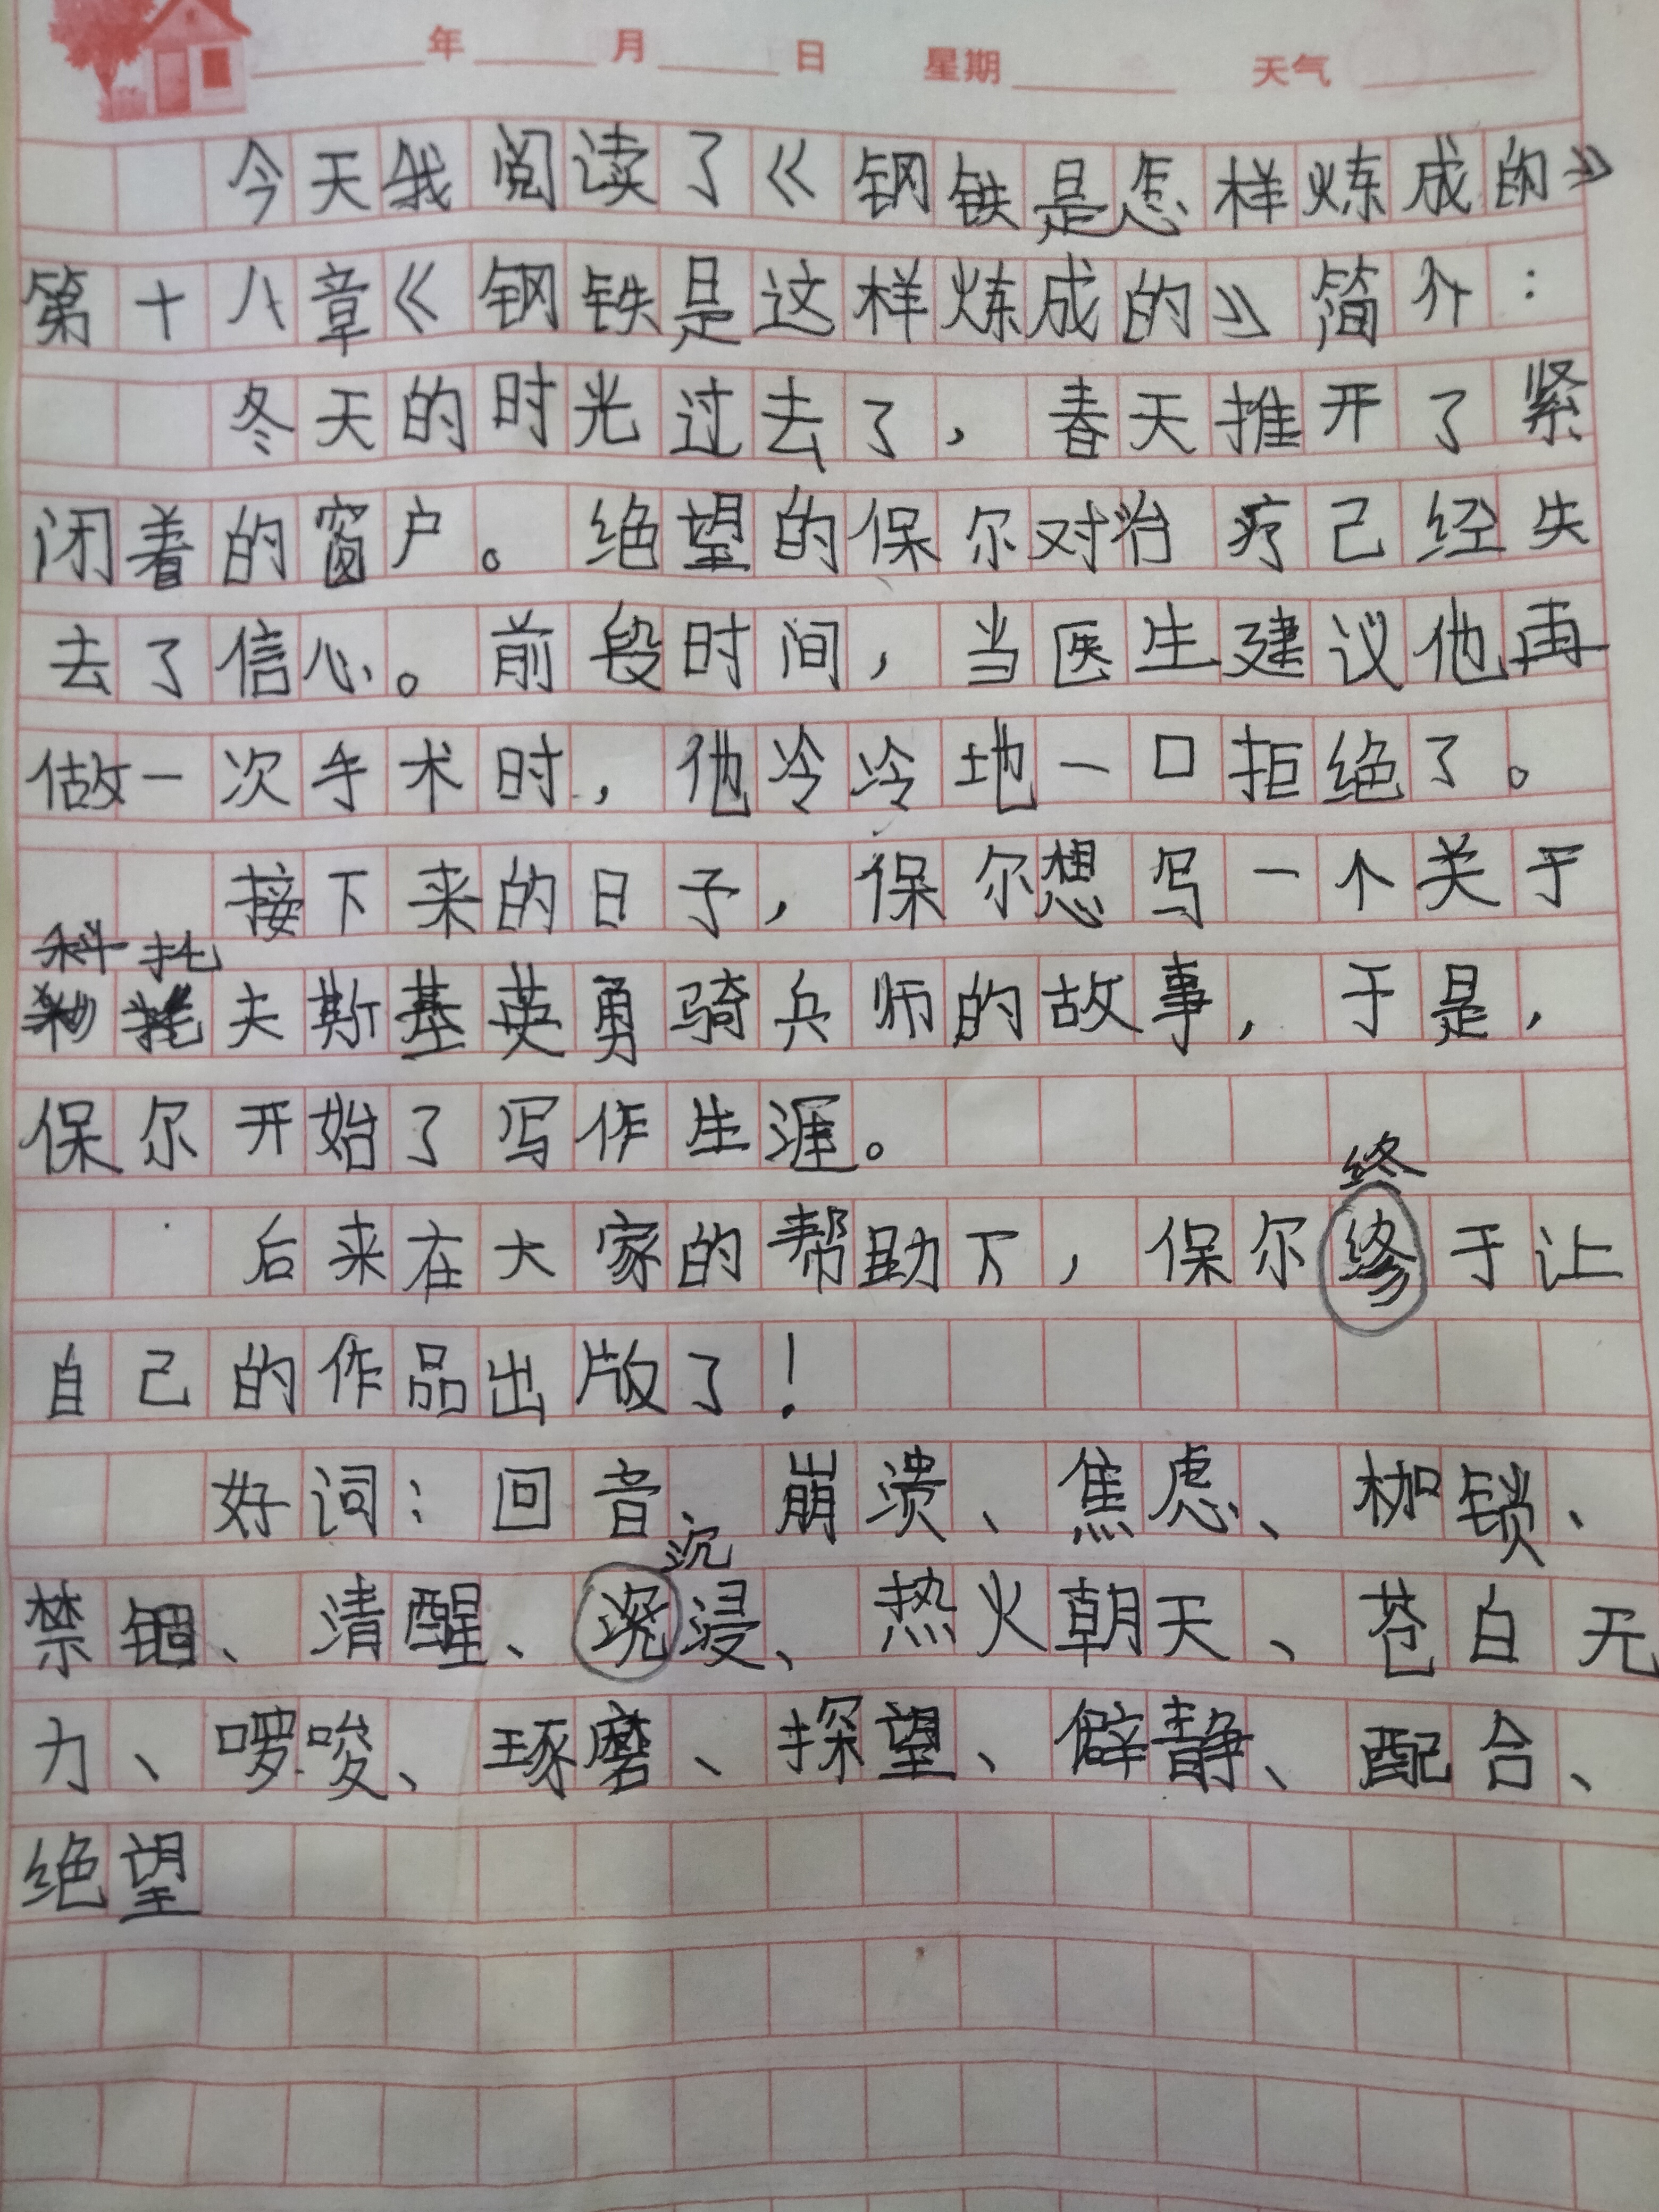 年 月 日 星期 天气
今天我阅读了《钢铁是怎样炼成的》
第十八章《钢铁是这样炼成的》简介：
冬天的时光过去了，春天推开了紧
闭着的窗户。绝望的保尔对治疗已经失
去了信心。前段时间，当医生建议他再
做一次手术时，他冷冷地一口拒绝了。
接下来的日子，保尔想写一个关于
科托
夫斯基英勇骑兵师的故事，于是，
保尔开始了写作生涯。
终
后来在大家的帮助下，保尔终于让
自己的作品出版了！
好词：回音、崩溃、焦虑、枷锁、
沉
禁锢、清醒、浸、热火朝天、苍白无
力、啰唆、琢磨、探望、僻静、配合、
绝望